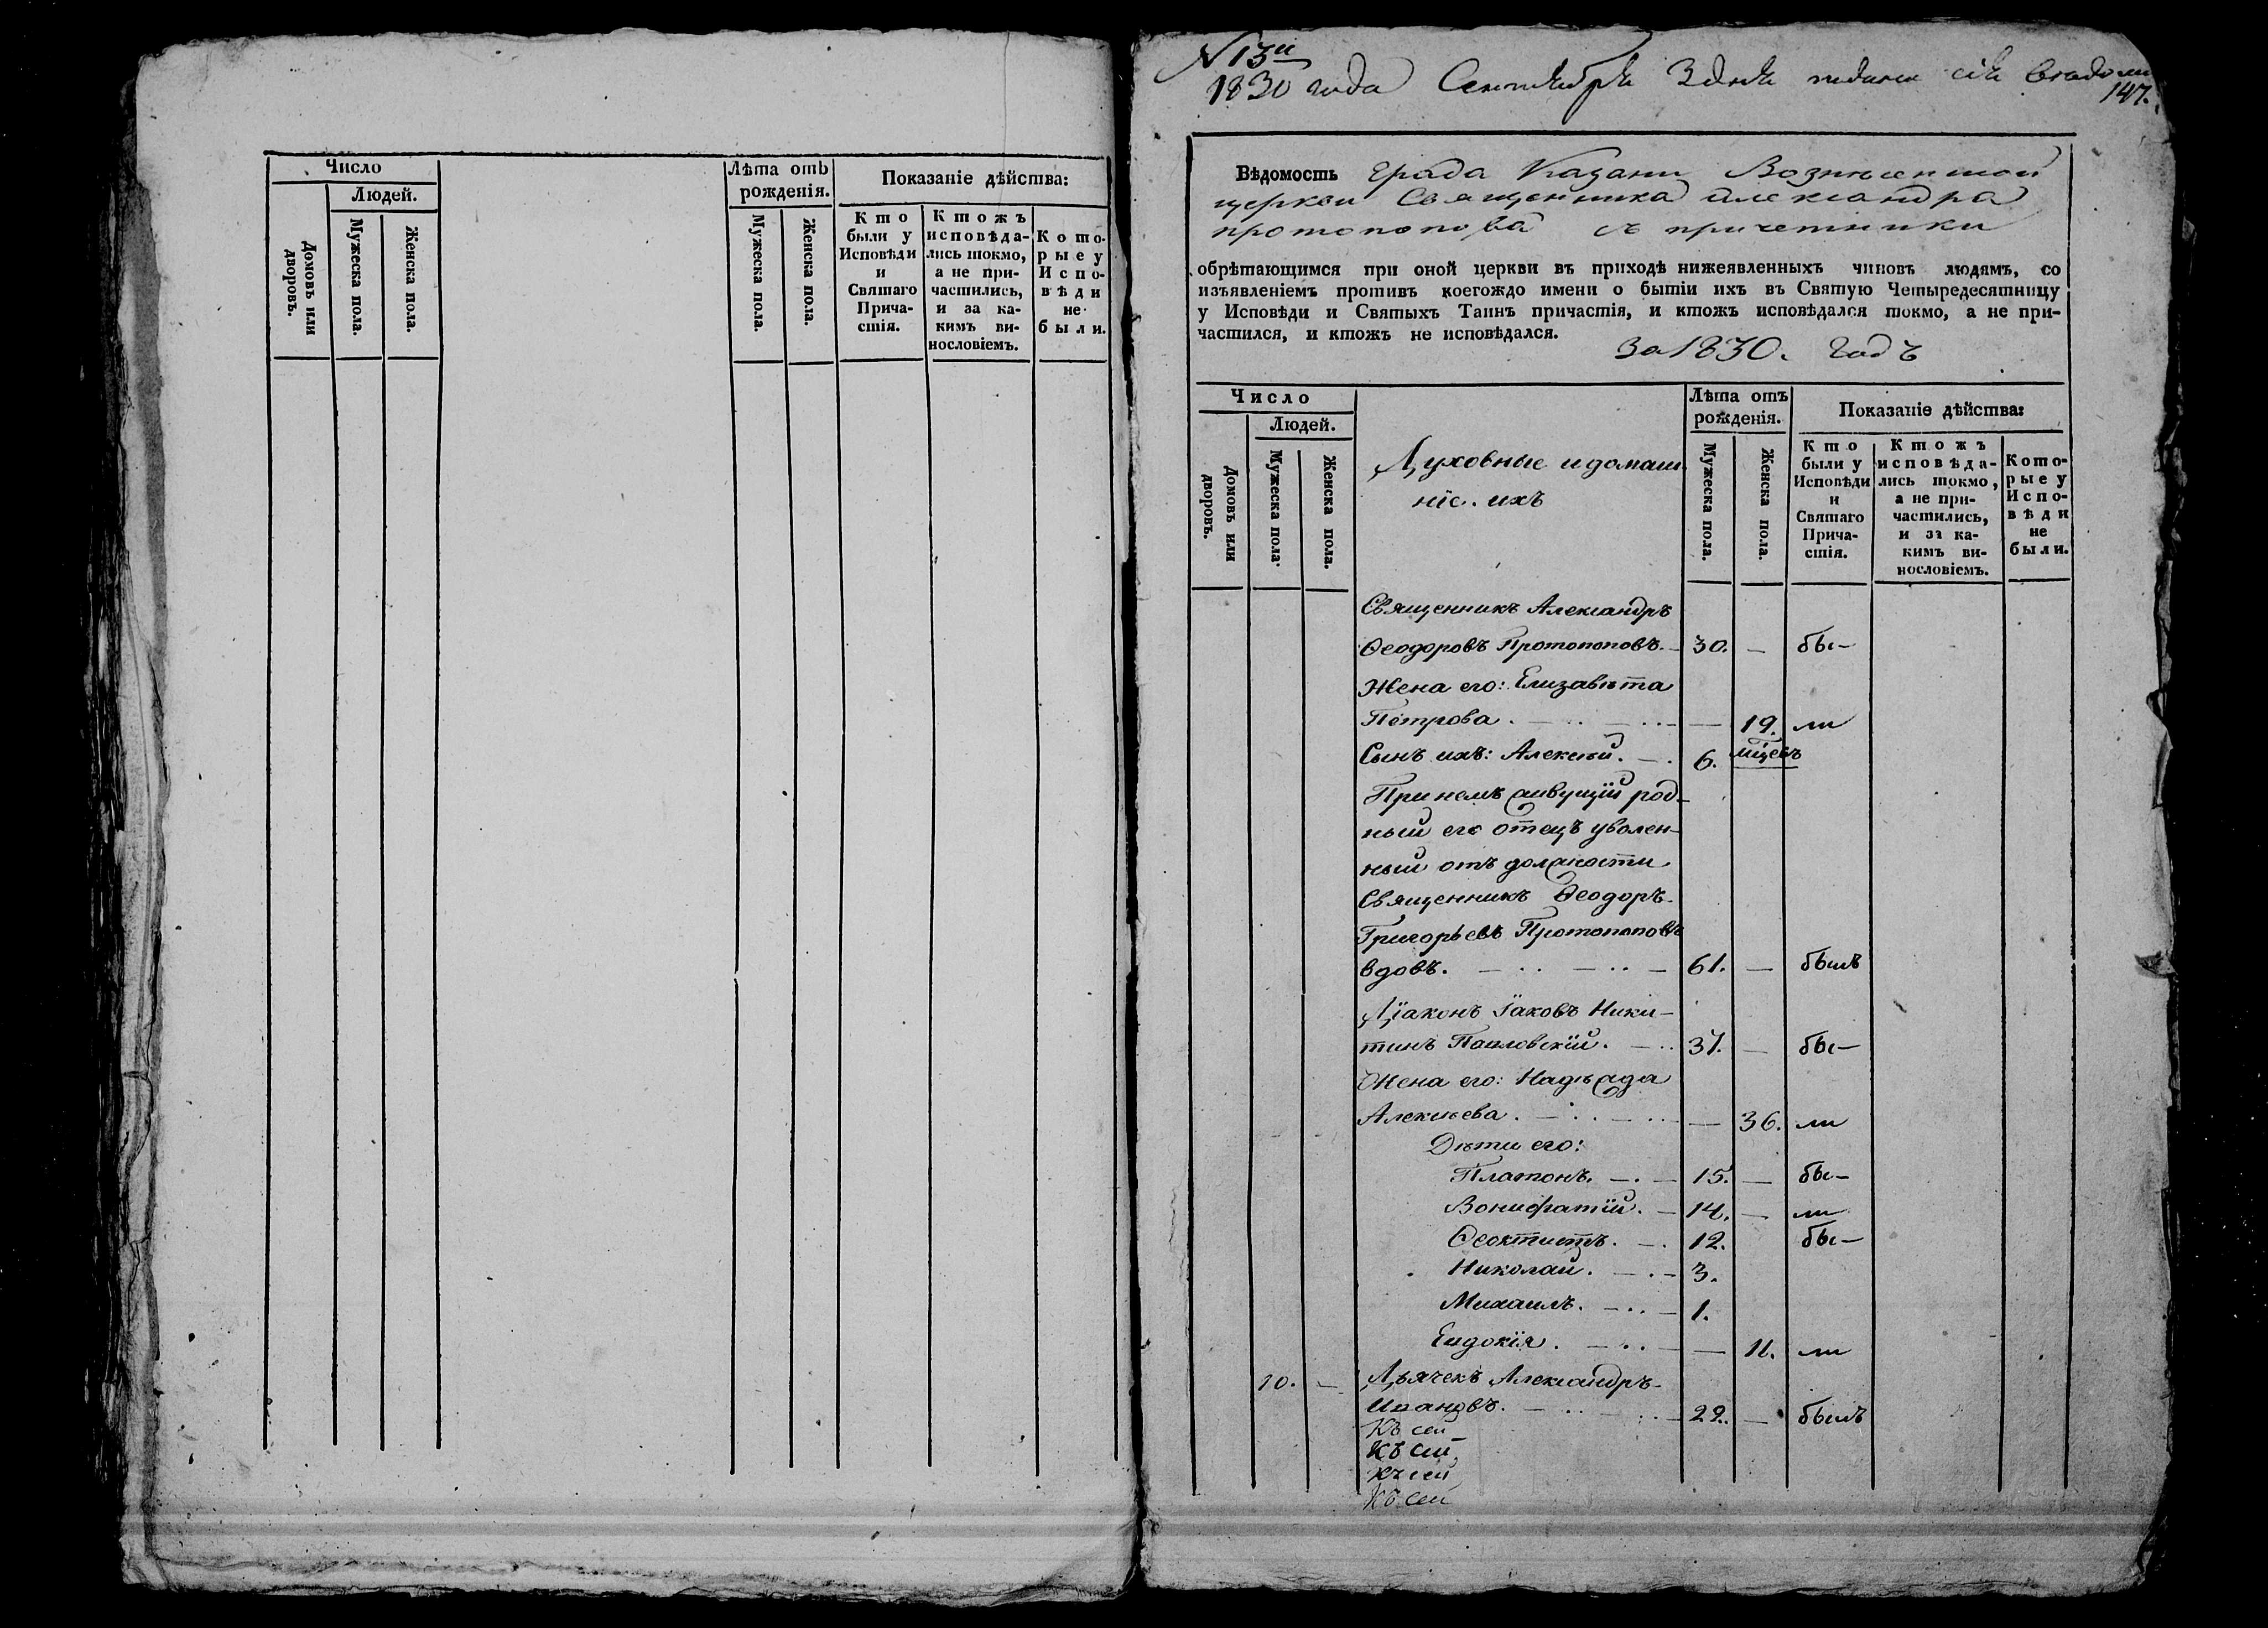 Число
Людей.
Домовъ или дворовъ.
Мужеска пола.
Женска пола.
Лѣта отъ
рожденія.
Мужеска пола.
Женска пола.
Показаніе дѣйства:
Кто
были у
Исповѣди
и
Святаго
Прича-
стія.
Ктожъ
исповѣда-
лись токмо,
а не при-
частились,
и за ка-
кимъ ви-
нословіемъ.
Кото-
рые у
Испо-
вѣди
не
были.
N 13й
1830 года Сентября 3 дня подана сія
147.
Вѣдомость Града Казани Вознесенской
церкви Священника Александра
Протопопова съ причетники
обрѣтающимся при оной церкви въ приходѣ нижеявленныхъ чиновъ людямъ, со
изъявленіемъ противъ коегождо имени о бытіи ихъ въ Святую Четыредесятницу
у Исповѣди и Святыхъ Таинъ причастія, и ктожъ исповѣдался токмо, а не при-
частился, и ктожъ не исповѣдался.
За 1830. годъ
Число
Людей.
Домовъ или дворовъ.
Мужеска пола.
Женска пола.
Духовные и домаш
ніе. ихъ
Лѣта отъ
рожденія.
Мужеска пола.
Женска пола.
Показаніе дѣйства:
Кто
были у
Исповѣди
и
Святаго
Прича-
стія.
Ктожъ
исповѣда-
лись токмо,
а не при-
частились,
и за ка-
кимъ ви-
нословіемъ.
Кото-
рые у
Испо-
вѣди
не
были.
Священникъ Александръ
Ѳеодоровъ Протопоповъ. — 30. — бы—
Жена его: Елизавѣта
Петрова. — 19. ли
Сынъ ихъ: Алексѣй. — 6. мцевъ
При немъ живущій род-
ный его отецъ уволен-
ный отъ должности
Священникъ Ѳеодоръ
Григорьевъ Протопоповъ
вдовъ. — 61. — былъ
Діаконъ Іаковъ Ники-
тинъ Павловскій. — 37. — бы—
Жена его: Надѣжда
Алексѣева. — 36. ли
Дѣти его:
Платонъ. — 15. — бы—
Вонифатій. — 14. — ли
Ѳеоктистъ. — 12. бы—
Николай. — 3.
Михаилъ. — 1.
Евдокія. — 11. ли
10. — Дьячекъ Александръ
Ивановъ. — 22. — былъ
Къ сей
Къ сей
Къ сей
Къ сей